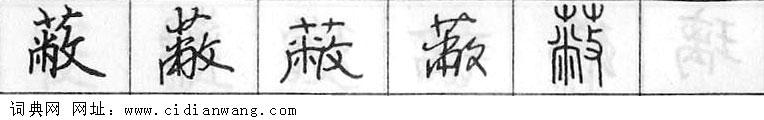 蔽 蔽 蔽 蔽 蔽
词典网 网址：www.cidianwang.com